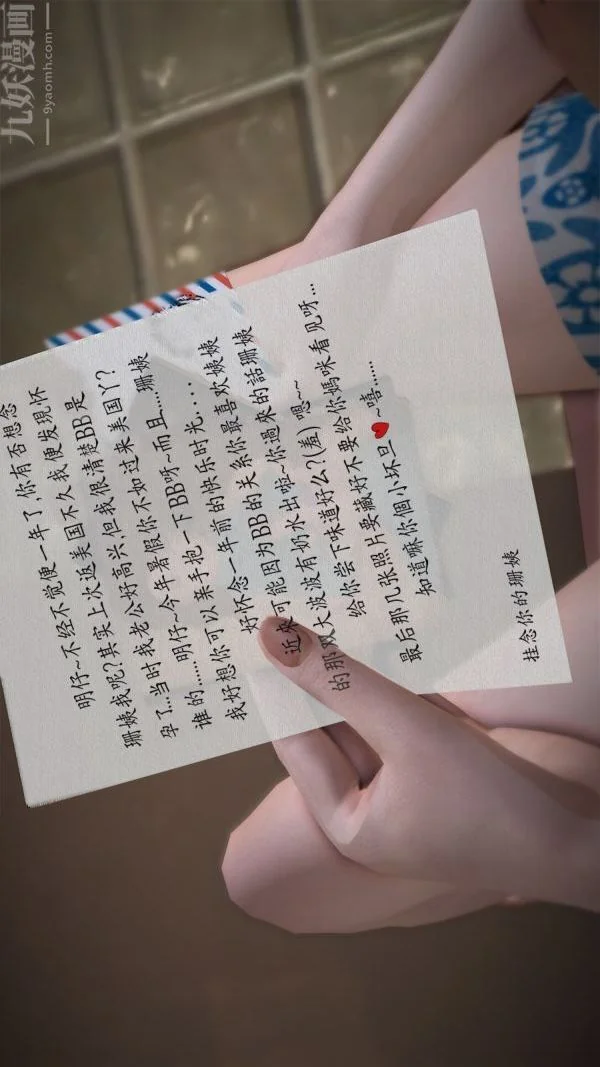 九妖漫画
9yaomh.com
明仔~不经不觉便一年了,你有否想念
珊姨我呢?其实上次返美国不久我便发现怀
孕了...当时我老公好高兴,但我很清楚BB是
谁的......明仔~今年暑假你不如过来美国丫?
我好想你可以亲手抱一下BB呀~而且....珊姨
好怀念一年前的快乐时光....
近來可能因为BB的关系你最喜欢姨姨
的那双大波波有奶水出啦~你過來的話珊姨
给你尝下味道好么?(羞) 嗯~~
最后那几张照片要藏好不要给你妈咪看见呀...
知道嘛你個小坏旦~嘻......
挂念你的珊姨